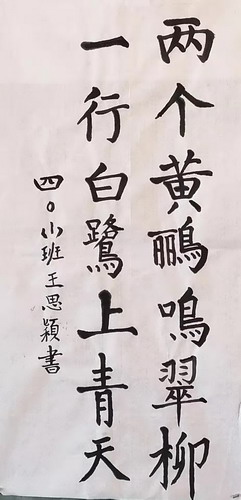 两个黄鹂鸣翠柳
一行白鹭上青天
四〇小班王思颖书